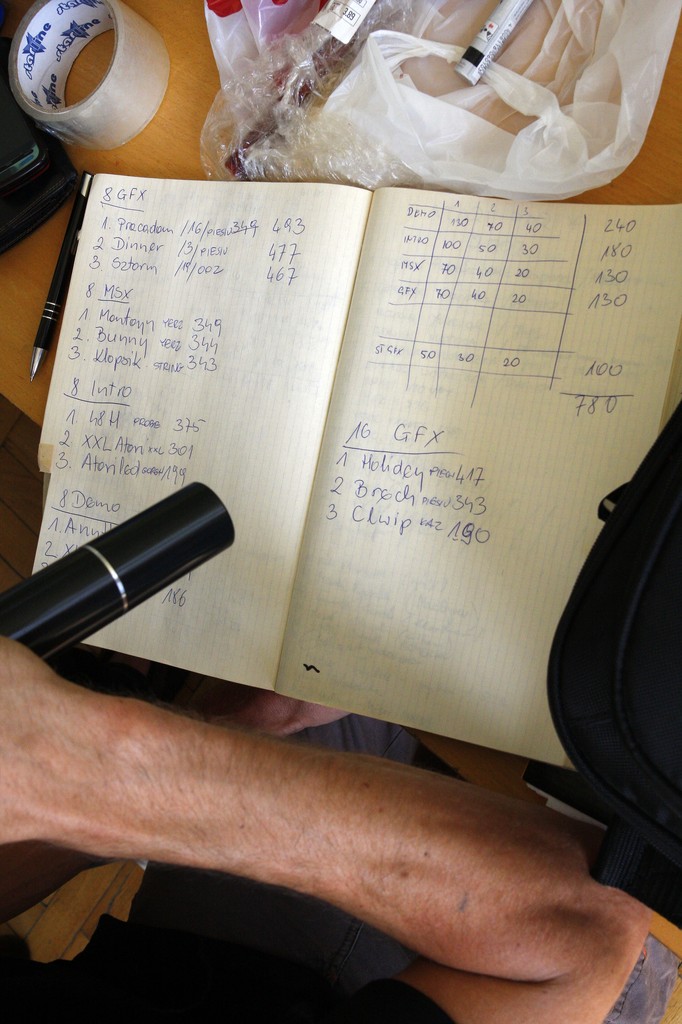 starline
3.89
8 GFX
1. Pracadom /16/PIESIU 349 493
2 Dinner /3/PIESIU 477
3. Sztorm 467
8 MSX
1. 349
2. Bunny 344
3. Klopsik 343
8 Intro
1. 48H 375
2 XXL Atari XXL 301
3. 199
8 Demo
1.
2
186
1 2 3
DEMO 130 70 40 240
INTRO 100 50 30 180
MSX 70 40 20 130
GFX 70 40 20 130
ST GFX 50 30 20 100
780
16 GFX
1 Holiday PIESIU 417
2 PIESIU 343
3 KAZ 190